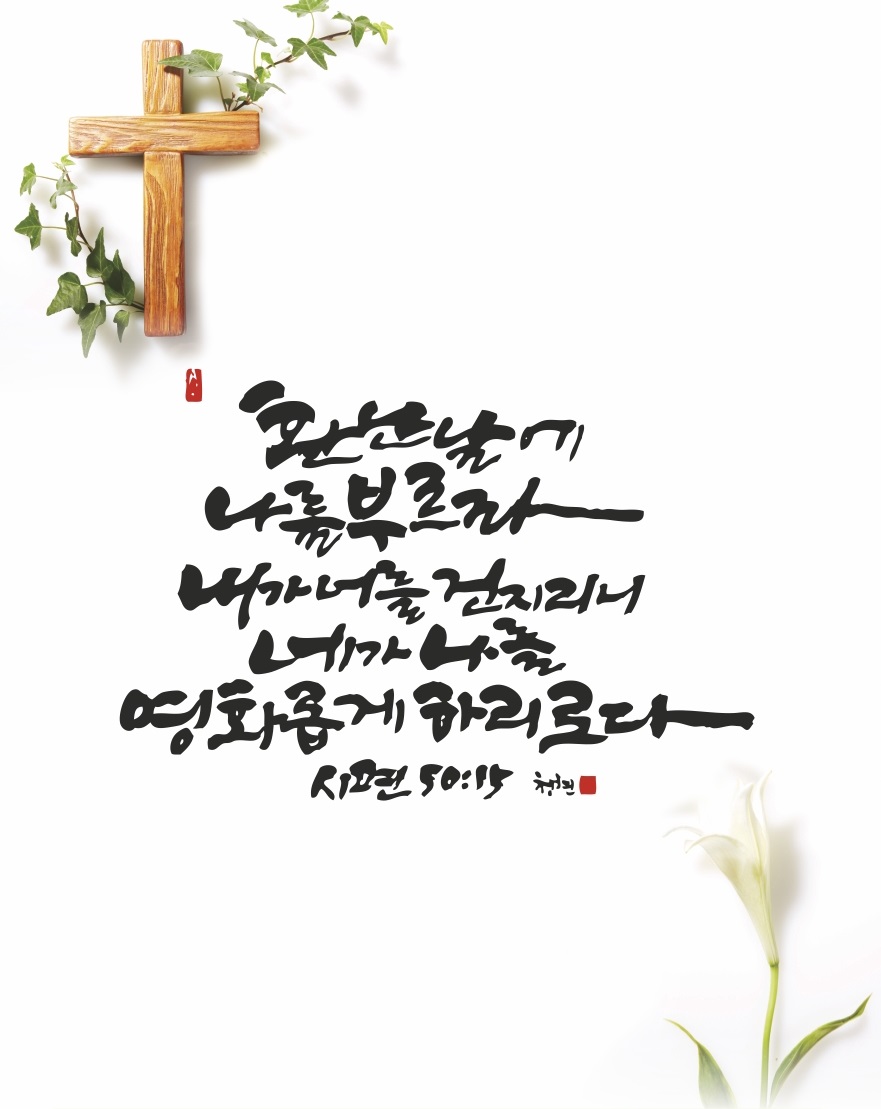 환난날에
나를 부르라
내가 너를 건지리니
네가 나를
영화롭게 하리로다
시편 50:15